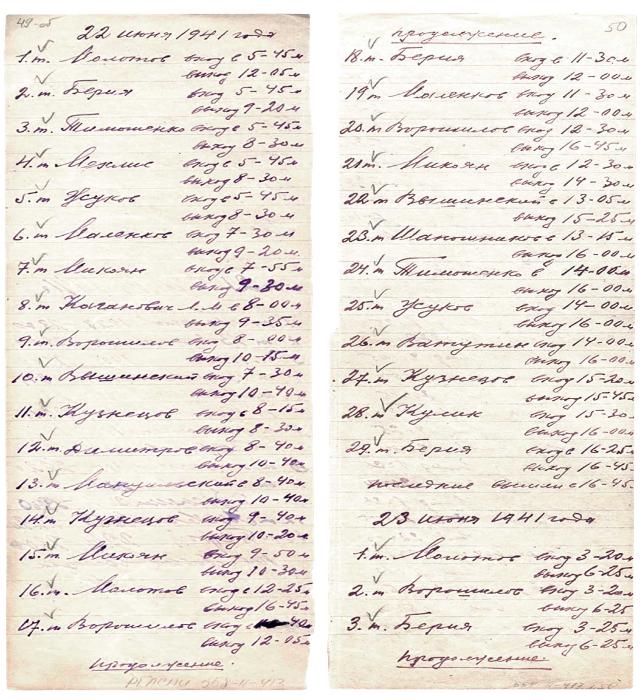 49-об
22 июня 1941 года
1. т. Молотов вход в 5-45м
выход 12-05м
2. т. Берия вход 5-45м
выход 9-20м
3. т. Тимошенко вход в 5-45м
выход 8-30м
4. т. Мехлис вход в 5-45м
выход 8-30м
5. т Жуков вход в 5-45м
выход 8-30м
6. т Маленков вход 7-30м
выход 9-20м
7. т Микоян вход в 7-55м
выход 9-30м
8. т Каганович Л.М в 8-00м
выход 9-35м
9. т Ворошилов вход 8-00м
выход 10-15м
10. т Вышинский вход 7-30м
выход 10-40м
11. т. Кузнецов вход в 8-15м
выход 8-30м
12. т Димитров вход 8-40м
выход 10-40м
13. т. Мануильский в 8-40м
выход 10-40м
14. т Кузнецов вход 9-40м
выход 10-20м
15. т. Микоян вход 9-50м
выход 10-30м
16. т. Молотов вход в 12-25м
выход 16-45м
17. т Ворошилов вход в 40м
выход 12-05м
продолжение.
РГАСПИ 558-11-412
50
продолжение.
18. т. Берия вход в 11-30м
выход 12-00м
19 т Маленков вход 11-30м
выход 12-00м
20. т Ворошилов вход 12-30м
выход 16-45м
21 т. Микоян вход в 12-30м
выход 14-30м
22 т Вышинский в 13-05м
выход 15-25м
23. т Шапошников в 13-15м
выход 16-00м
24. т Тимошенко в 14-00м
выход 16-00м
25 т Жуков вход 14-00м
выход 16-00м
26 т Ватутин вход 14-00м
выход 16-00м
27. т Кузнецов вход 15-20м
выход 15-45м
28 т Кулик вход 15-30м
выход 16-00м
29. т. Берия вход в 16-25м
выход 16-45
последние вышли в 16-45
23 июня 1941 года
1. т. Молотов вход 3-20м
выход 6-25м
2. т Ворошилов вход 3-20м
выход 6-25
3. т. Берия вход 3-25м
выход 6-25м
продолжение.